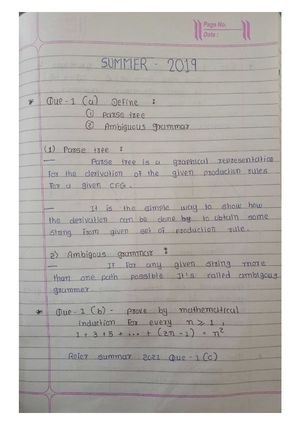 Page No.
Date :
SUMMER - 2019
* Que-1 (a) Define :
① Parse tree
② Ambigucus grammar
(1) Parse tree :
— Parse tree is a graphical representation
for the derivation of the given production rules
for a given CFG.
— It is the simple way to show how
the derivation can be done by to obtain some
string from given set of production rule.
2) Ambigous grammar :
— If for any given string more
than one path possible it's called ambigous
grammer.
* Que-1 (b) - prove by mathematical
induction for every n ≥ 1,
1 + 3 + 5 + ... + (2n - 1) = n²
Refer summar 2021 Que-1 (c)